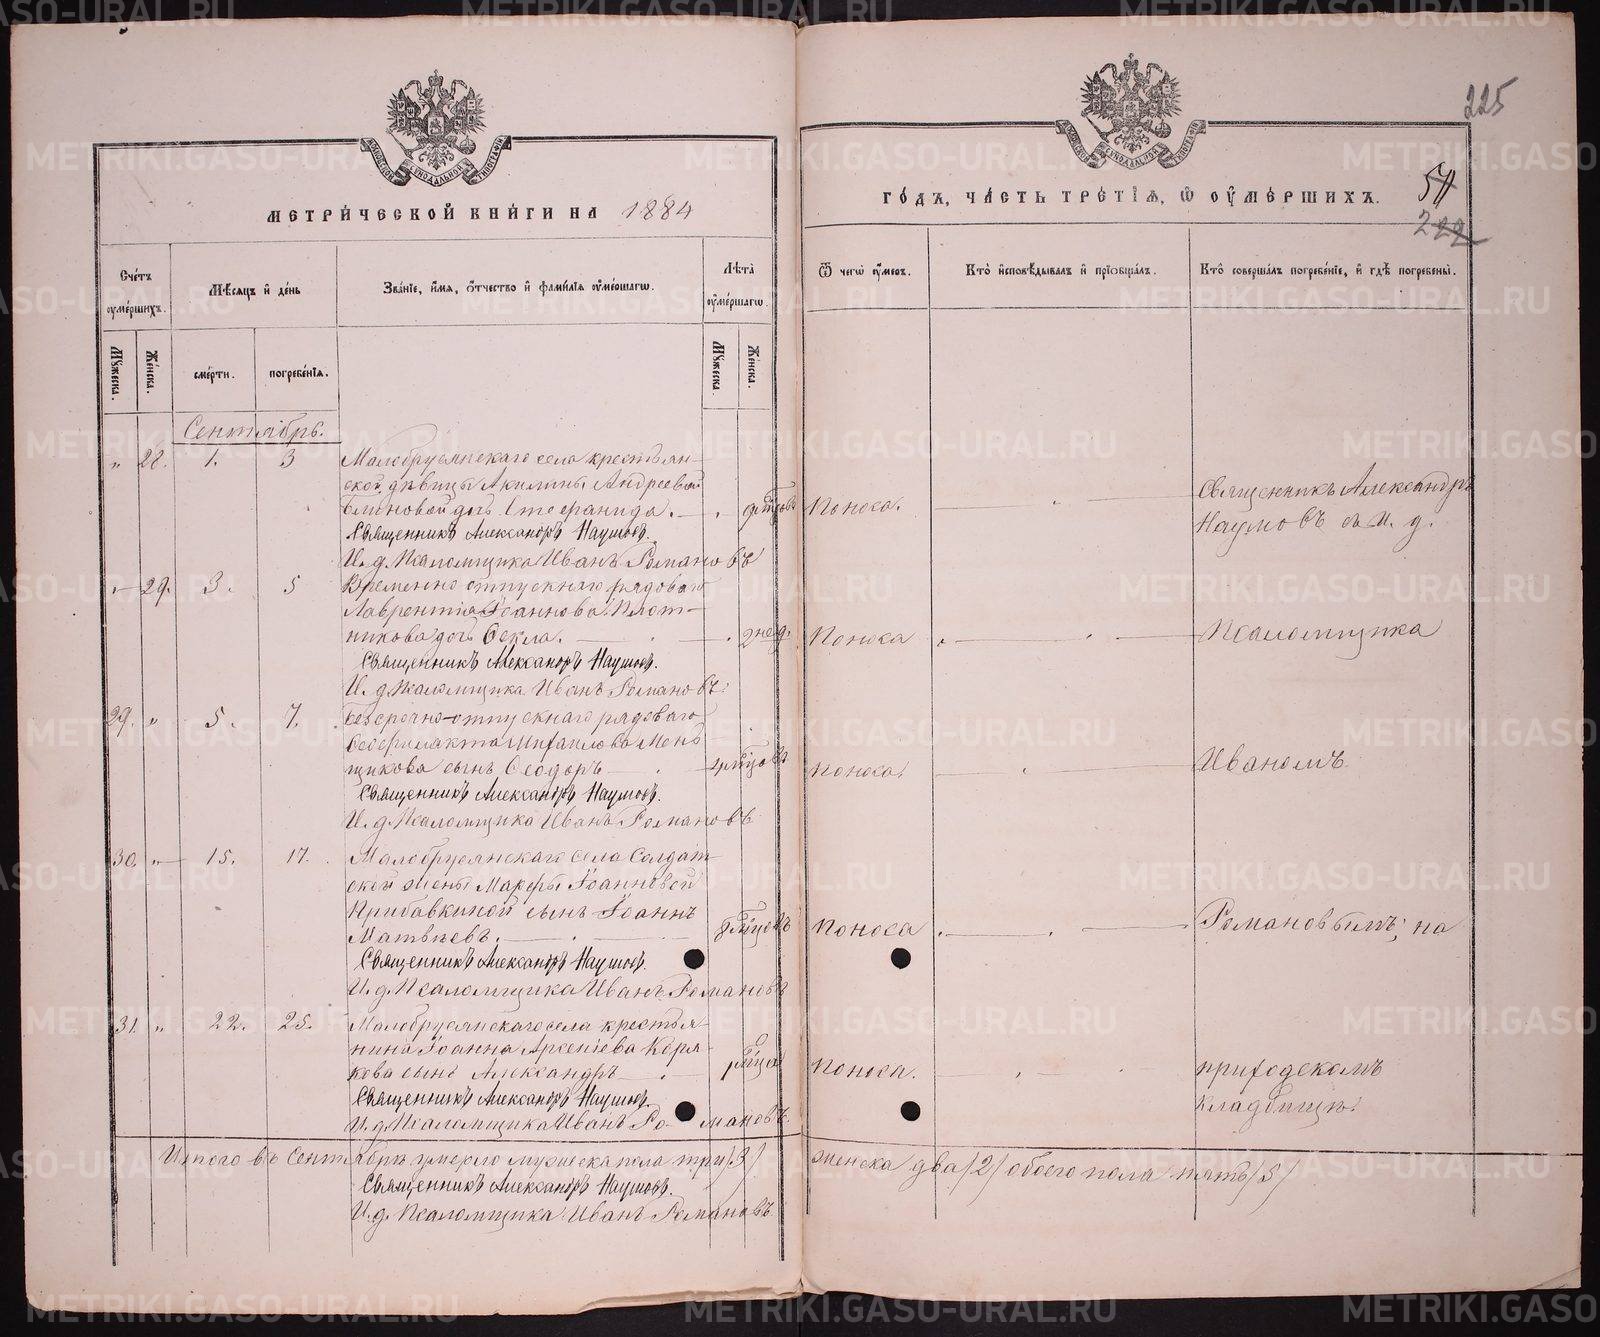 225
МЕТРИЧЕСКОЙ КНИГИ НА 1884
ГОДЪ, ЧАСТЬ ТРЕТІЯ, Ѡ ОУМЕРШИХЪ.
54
222
Счетъ оумершихъ.
Мѣсяцъ и день
Званіе, имя, отчество и фамилія оумершагѡ.
Лѣта оумершагѡ.
Ѿ чегѡ оумеръ.
Кто исповѣдывалъ и пріобщалъ.
Кто совершалъ погребеніе, и гдѣ погребены.
Мужеска.
Женска.
смерти.
погребенія.
Мужеска
Женска.
Сентябрь.
" 28. 1. 3 Малобрусянскаго села крестьян-
ской дѣвицы Акилины Андреевой
Блиновой дочь Стефанида. Поноса. Священникъ Александръ
Священникъ Александръ Наумовъ. Наумовъ съ И. д.
И. д. Псаломщика Иванъ Романовъ
" 29. 3. 5 Временно отпускнаго рядоваго
Лаврентія Іоаннова Плот-
никова дочь Ѳекла. 2 нед. Поноса Псаломщика
Священникъ Александръ Наумовъ.
И. д. Псаломщика Иванъ Романовъ.
29. " 5. 7. Безсрочно-отпускнаго рядоваго
Михаилова Мень
щикова сынъ Ѳеодоръ поноса. Иваномъ
Священникъ Александръ Наумовъ.
И. д. Псаломщика Иванъ Романовъ
30. " 15. 17. Малобрусянскаго села Солдат-
ской жены Марфы Іоанновой
Прибавкиной сынъ Іоаннъ
Матвѣевъ. поноса Романовымъ; на
Священникъ Александръ Наумовъ.
И. д. Псаломщика Иванъ Романовъ
31. " 22. 25. Малобрусянскаго села крестья-
нина Іоанна Арсеніева Коря-
кова сынъ Александръ поноса. приходскомъ
Священникъ Александръ Наумовъ. кладбищѣ.
И. д. Псаломщика Иванъ Романовъ.
Итого въ Сентябрѣ умерло мужеска пола три /3/ женска два /2/ обоего пола пять /5/
Священникъ Александръ Наумовъ.
И. д. Псаломщика Иванъ Романовъ.
METRIKI.GASO-URAL.RU